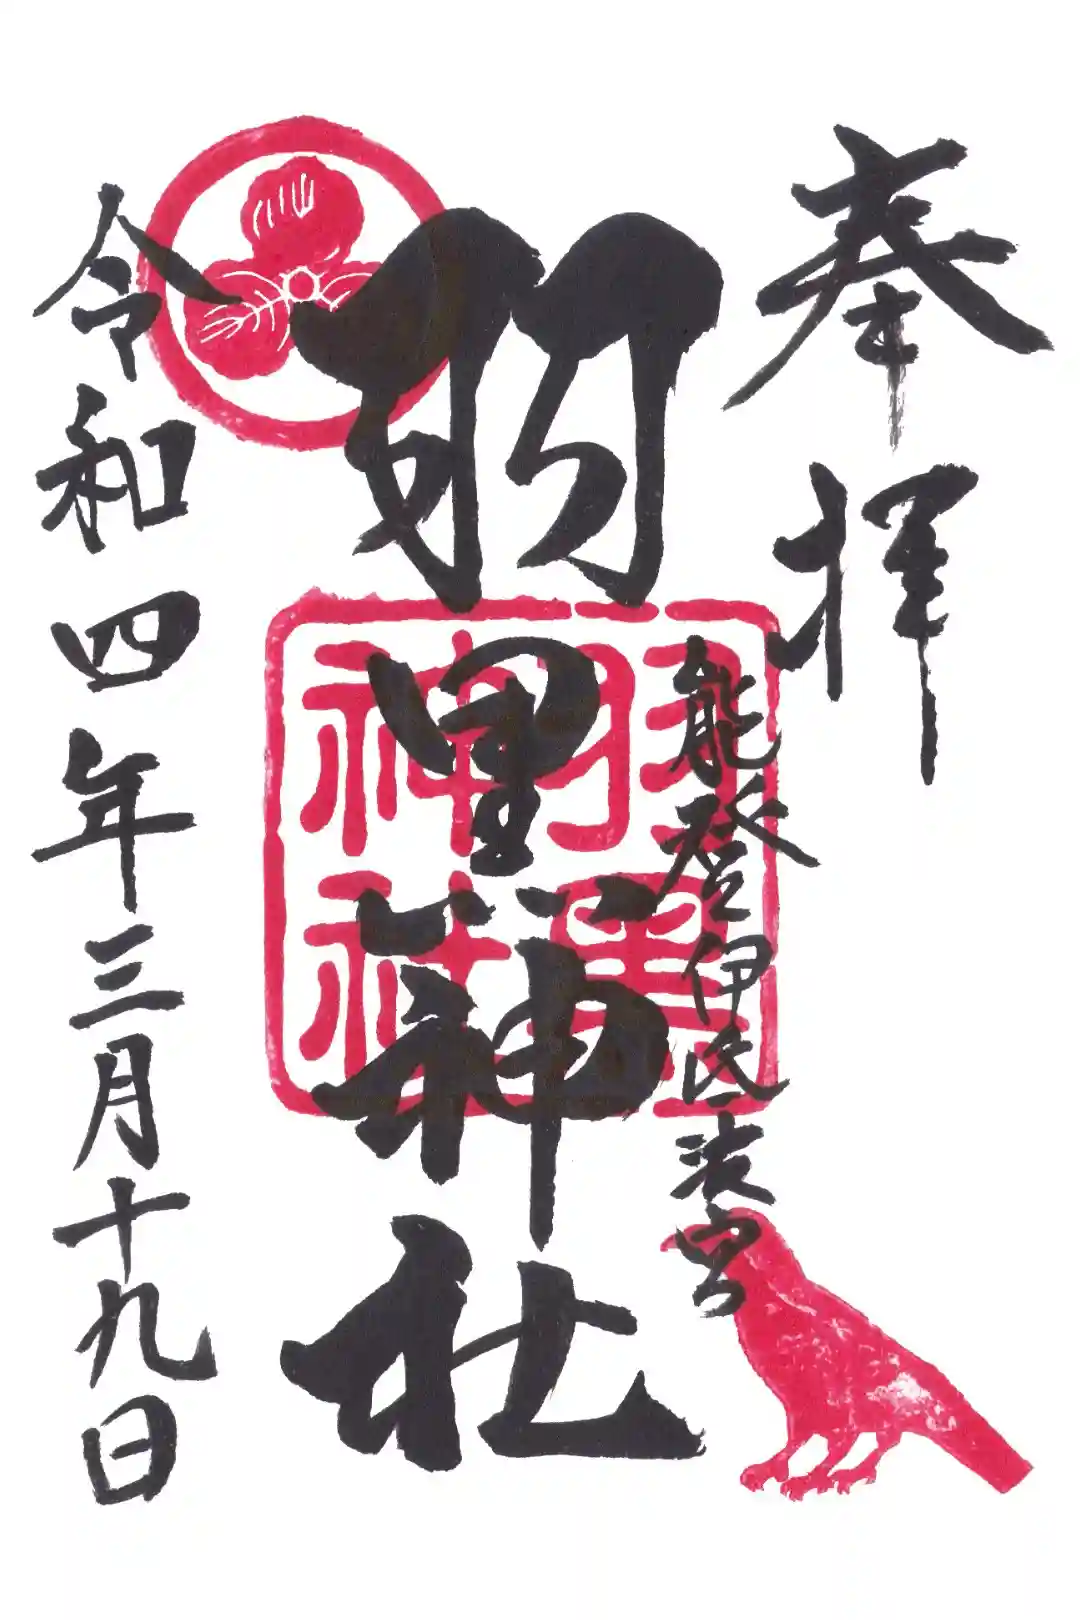 奉拝
能登伊氏波宮
羽黒神社
羽黒神社
令和四年三月十九日